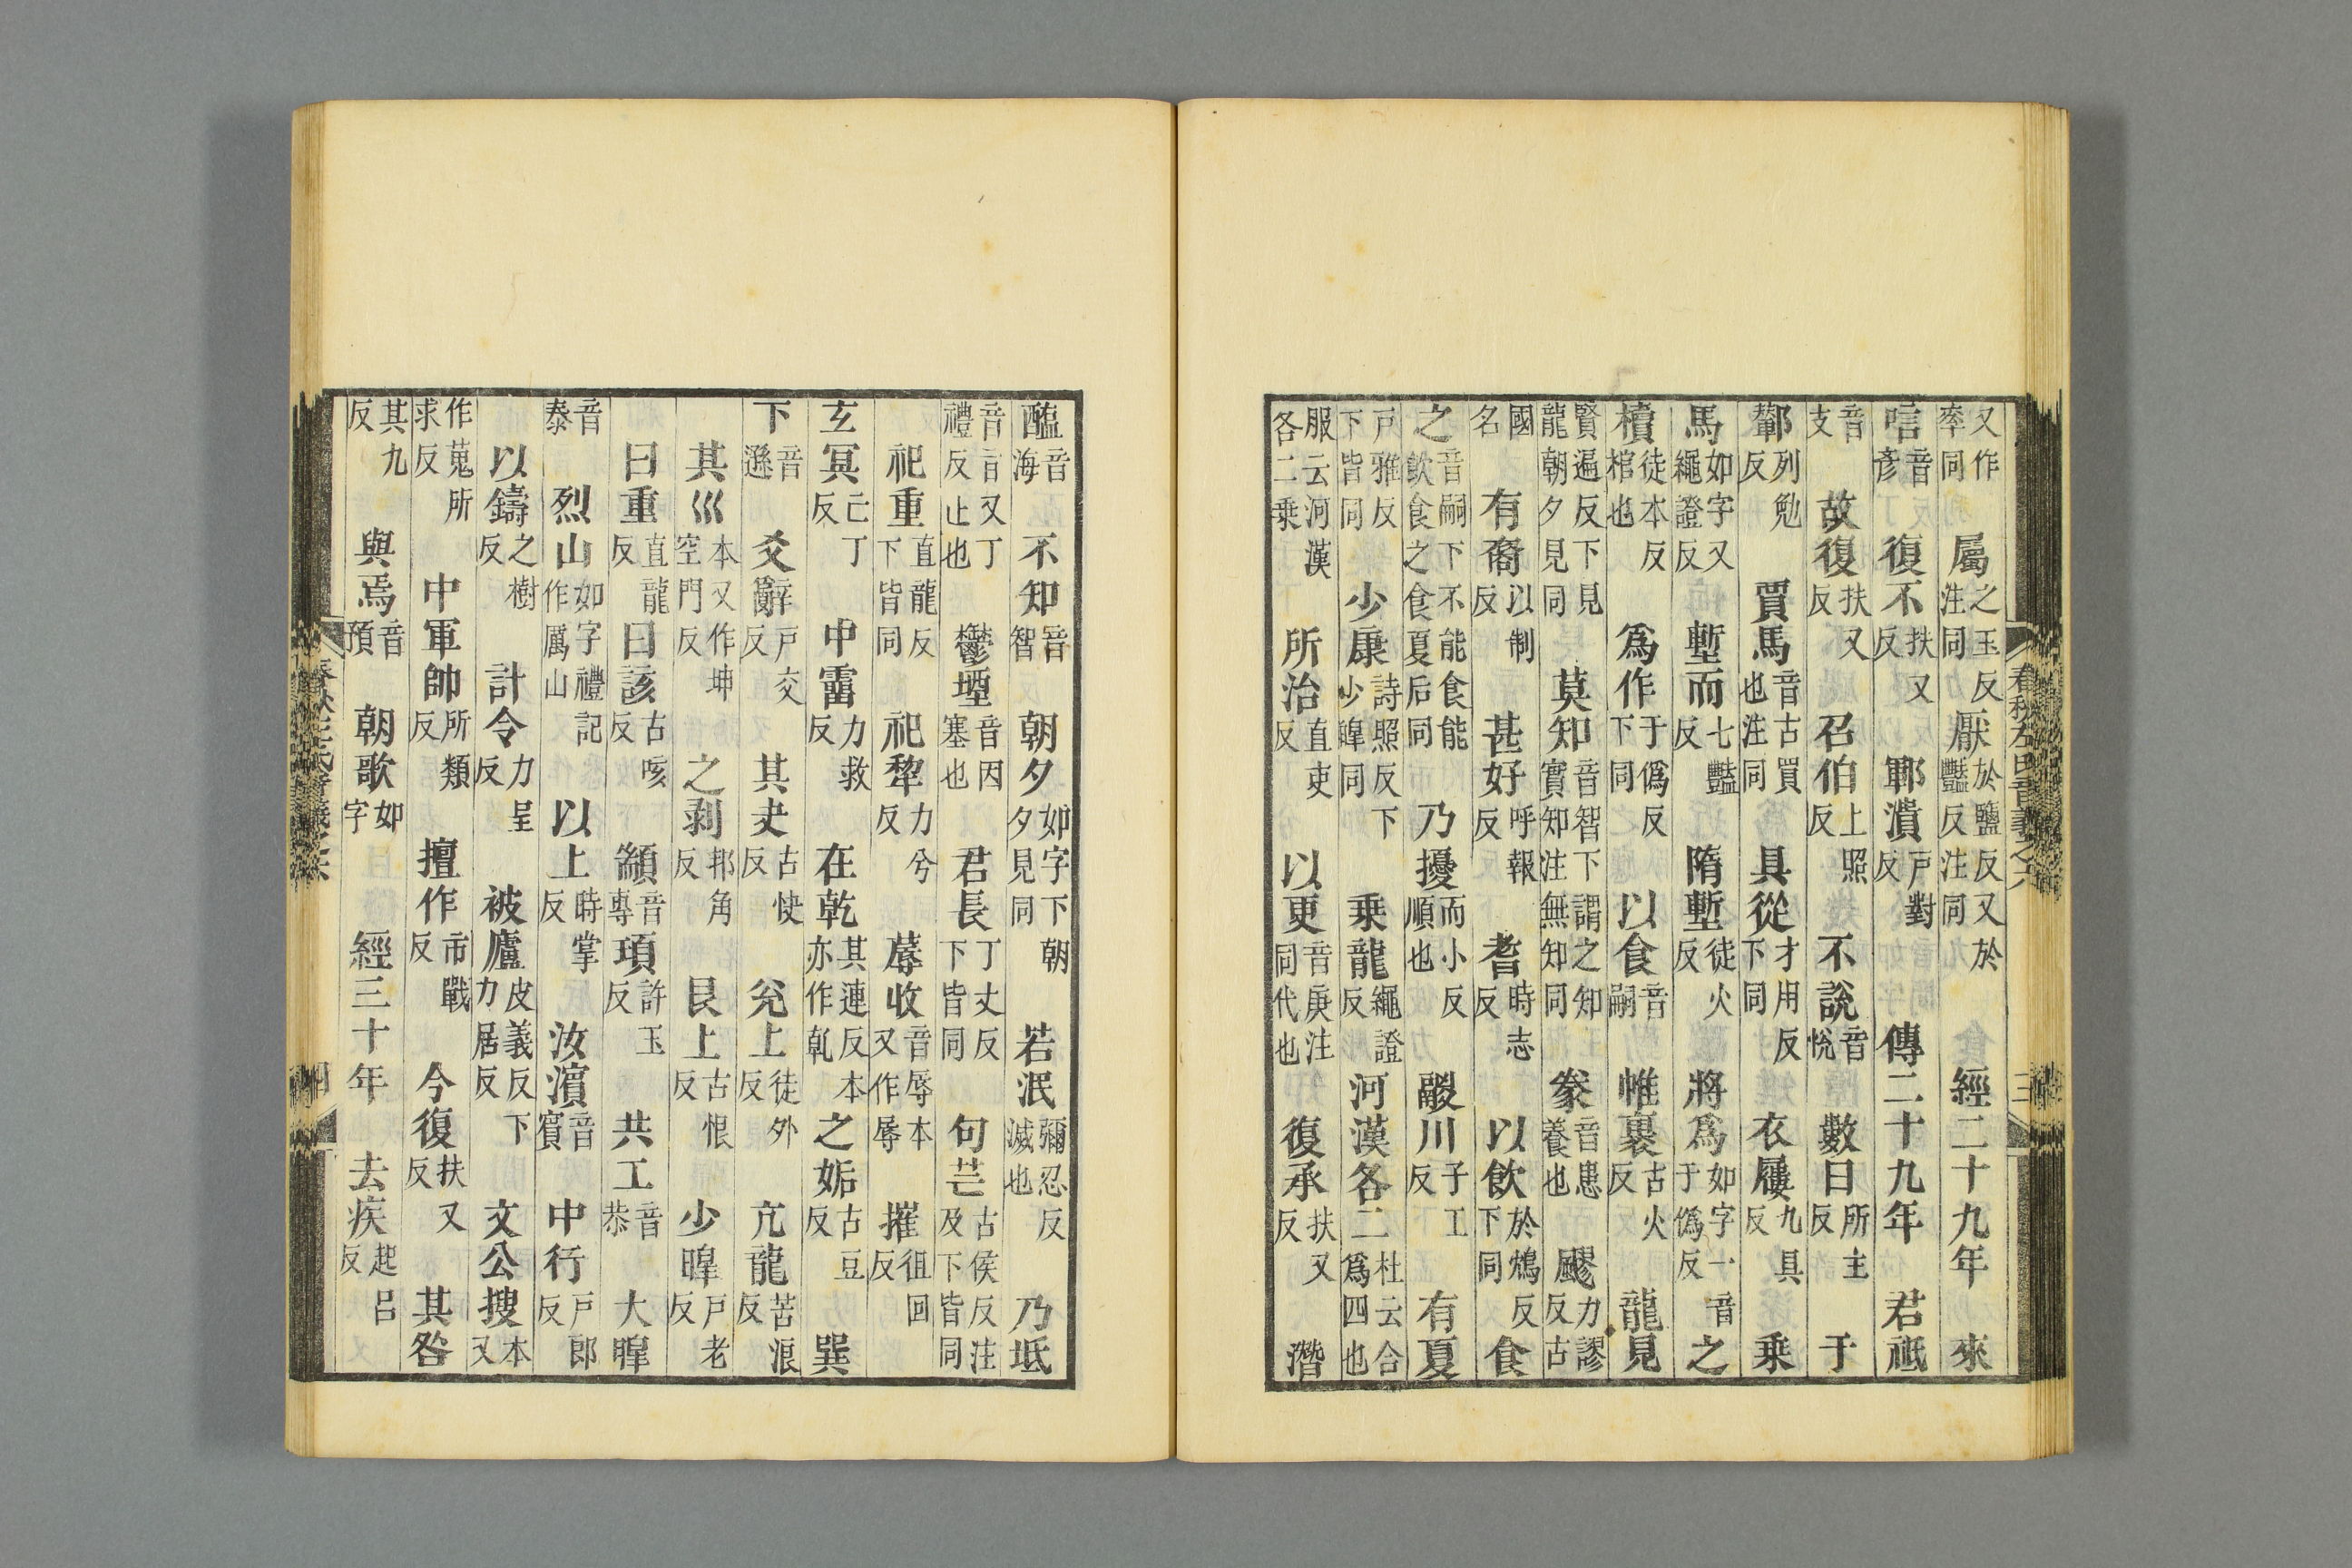 春秋左氏音義之六 三
又作率同 屬之玉反注同 厭於鹽反又於豔反注同 經二十九年 來
唁音彥 復不扶又反 鄆潰戶對反 傳二十九年 君祗
音支 故復扶又反 召伯上照反 不說音悅 數曰所主反 于
鄻列勉反 賈馬音古買也注同 具從才用反下同 衣屨九具反 乗
馬如字又繩證反 塹而七豔反 隋塹徒火反 將爲如字一音于僞反 之
櫝徒本反棺也 爲作于僞反下同 以食音嗣 帷裹古火反 龍見
賢遍反下見龍朝夕見同 莫知音智下謂之知實知注無知同 豢音患養也 飂力謬反古
國名 有裔以制反 甚好呼報反 耆時志反 以飲於鴆反下同 食
之音嗣下不能食能飲食之食夏后同 乃擾而小反順也 鬷川子工反 有夏
戶雅反下皆同 少康詩照反下少皥同 乗龍繩證反 河漢各二杜云合爲四也
服云河漢各二乗 所治直吏反 以更音庚注同代也 復承扶又反 潛
醢音海 不知音智 朝夕如字下朝夕見同 若泯彌忍反滅也 乃坻
音旨又丁禮反止也 鬱堙音因塞也 君長丁丈反下皆同 句芒古侯反注及下皆同
祀重直龍反下皆同 祀犂力兮反 蓐收音辱本又作辱 摧徂回反
玄冥亡丁反 中霤力救反 在乾其連反本亦作乹 之姤古豆反 巽
下音遜 爻辭戶交反 其夬古快反 兊上徒外反 亢龍苦浪反
其巛本又作坤空門反 之剥邦角反 艮上古恨反 少皥戶老反
曰重直龍反 曰該古咳反 顓音專 頊許玉反 共工音恭 大皥
音泰 烈山如字禮記作厲山 以上時掌反 汝濵音賓 中行戶郎反
以鑄之樹反 計令力呈反 被廬皮義反下力居反 文公搜本又
作蒐所求反 中軍帥所類反 擅作市戰反 今復扶又反 其咎
其九反 與焉音預 朝歌如字 經三十年 去疾起呂反
春秋左氏音義之六